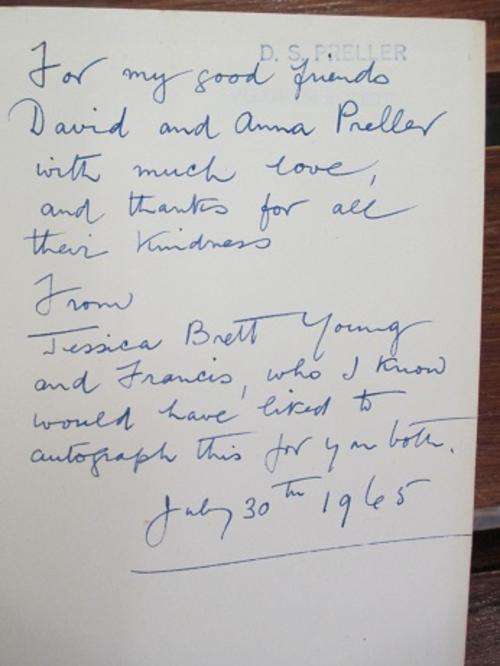 D. S. PRELLER
For my good friends
David and Anna Preller
with much love,
and thanks for all
their kindness
From
Jessica Brett Young
and Francis, who I know
would have liked to
autograph this for you both.
July 30th 1965